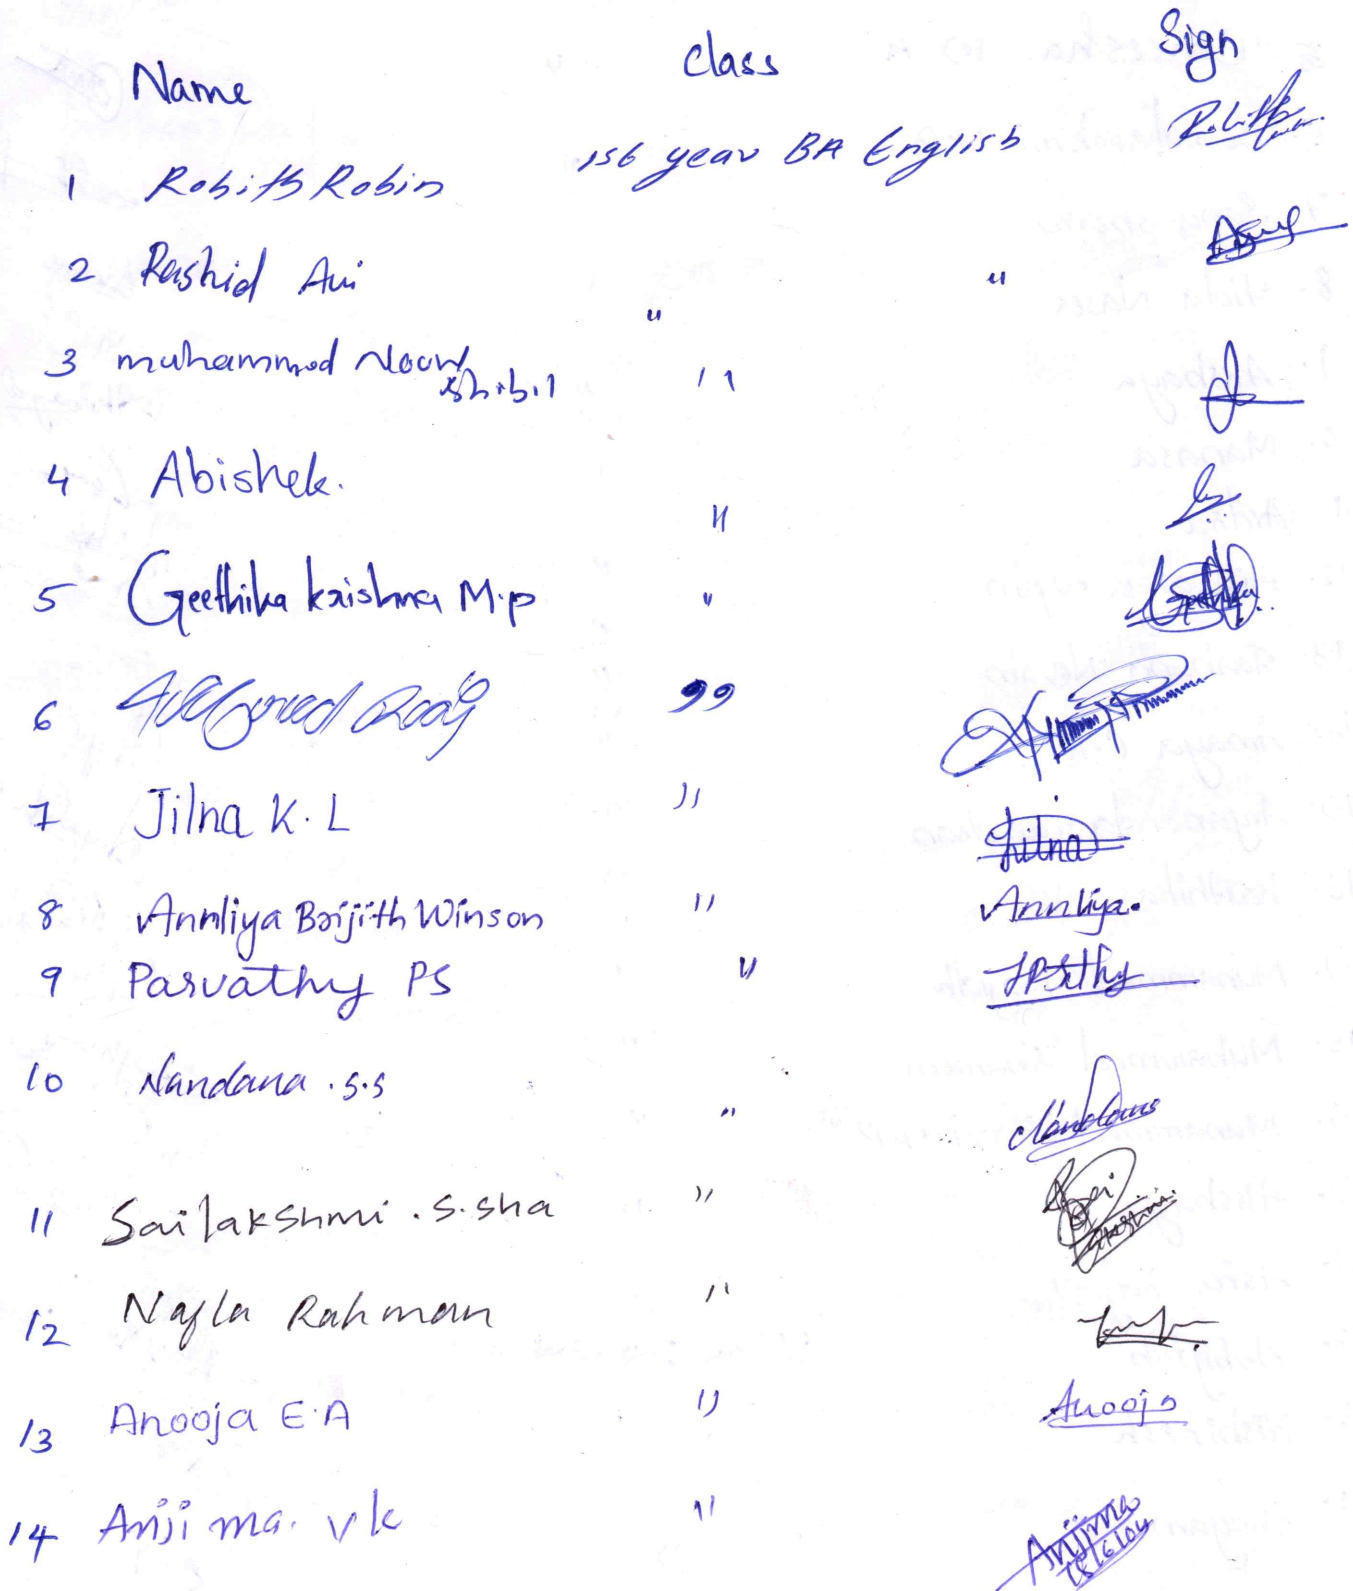 Name class Sign
1 Robith Robin 1st year BA English
2 Rashid Avi " "
3 muhammod Noow shibil "
4 Abishek. "
5 Geethika krishna M.p " Geethika
6 "
7 Jilna K.L " Jilna
8 Annliya Brijith Winson " Annliya.
9 Parvathy PS "
10 Nandana .s.s " Nandana
11 Sailakshmi . s. sha " Sai Lakshmi
12 Najla Rahman "
13 Anooja E.A " Anooja
14 Anjima. v k " Anjima